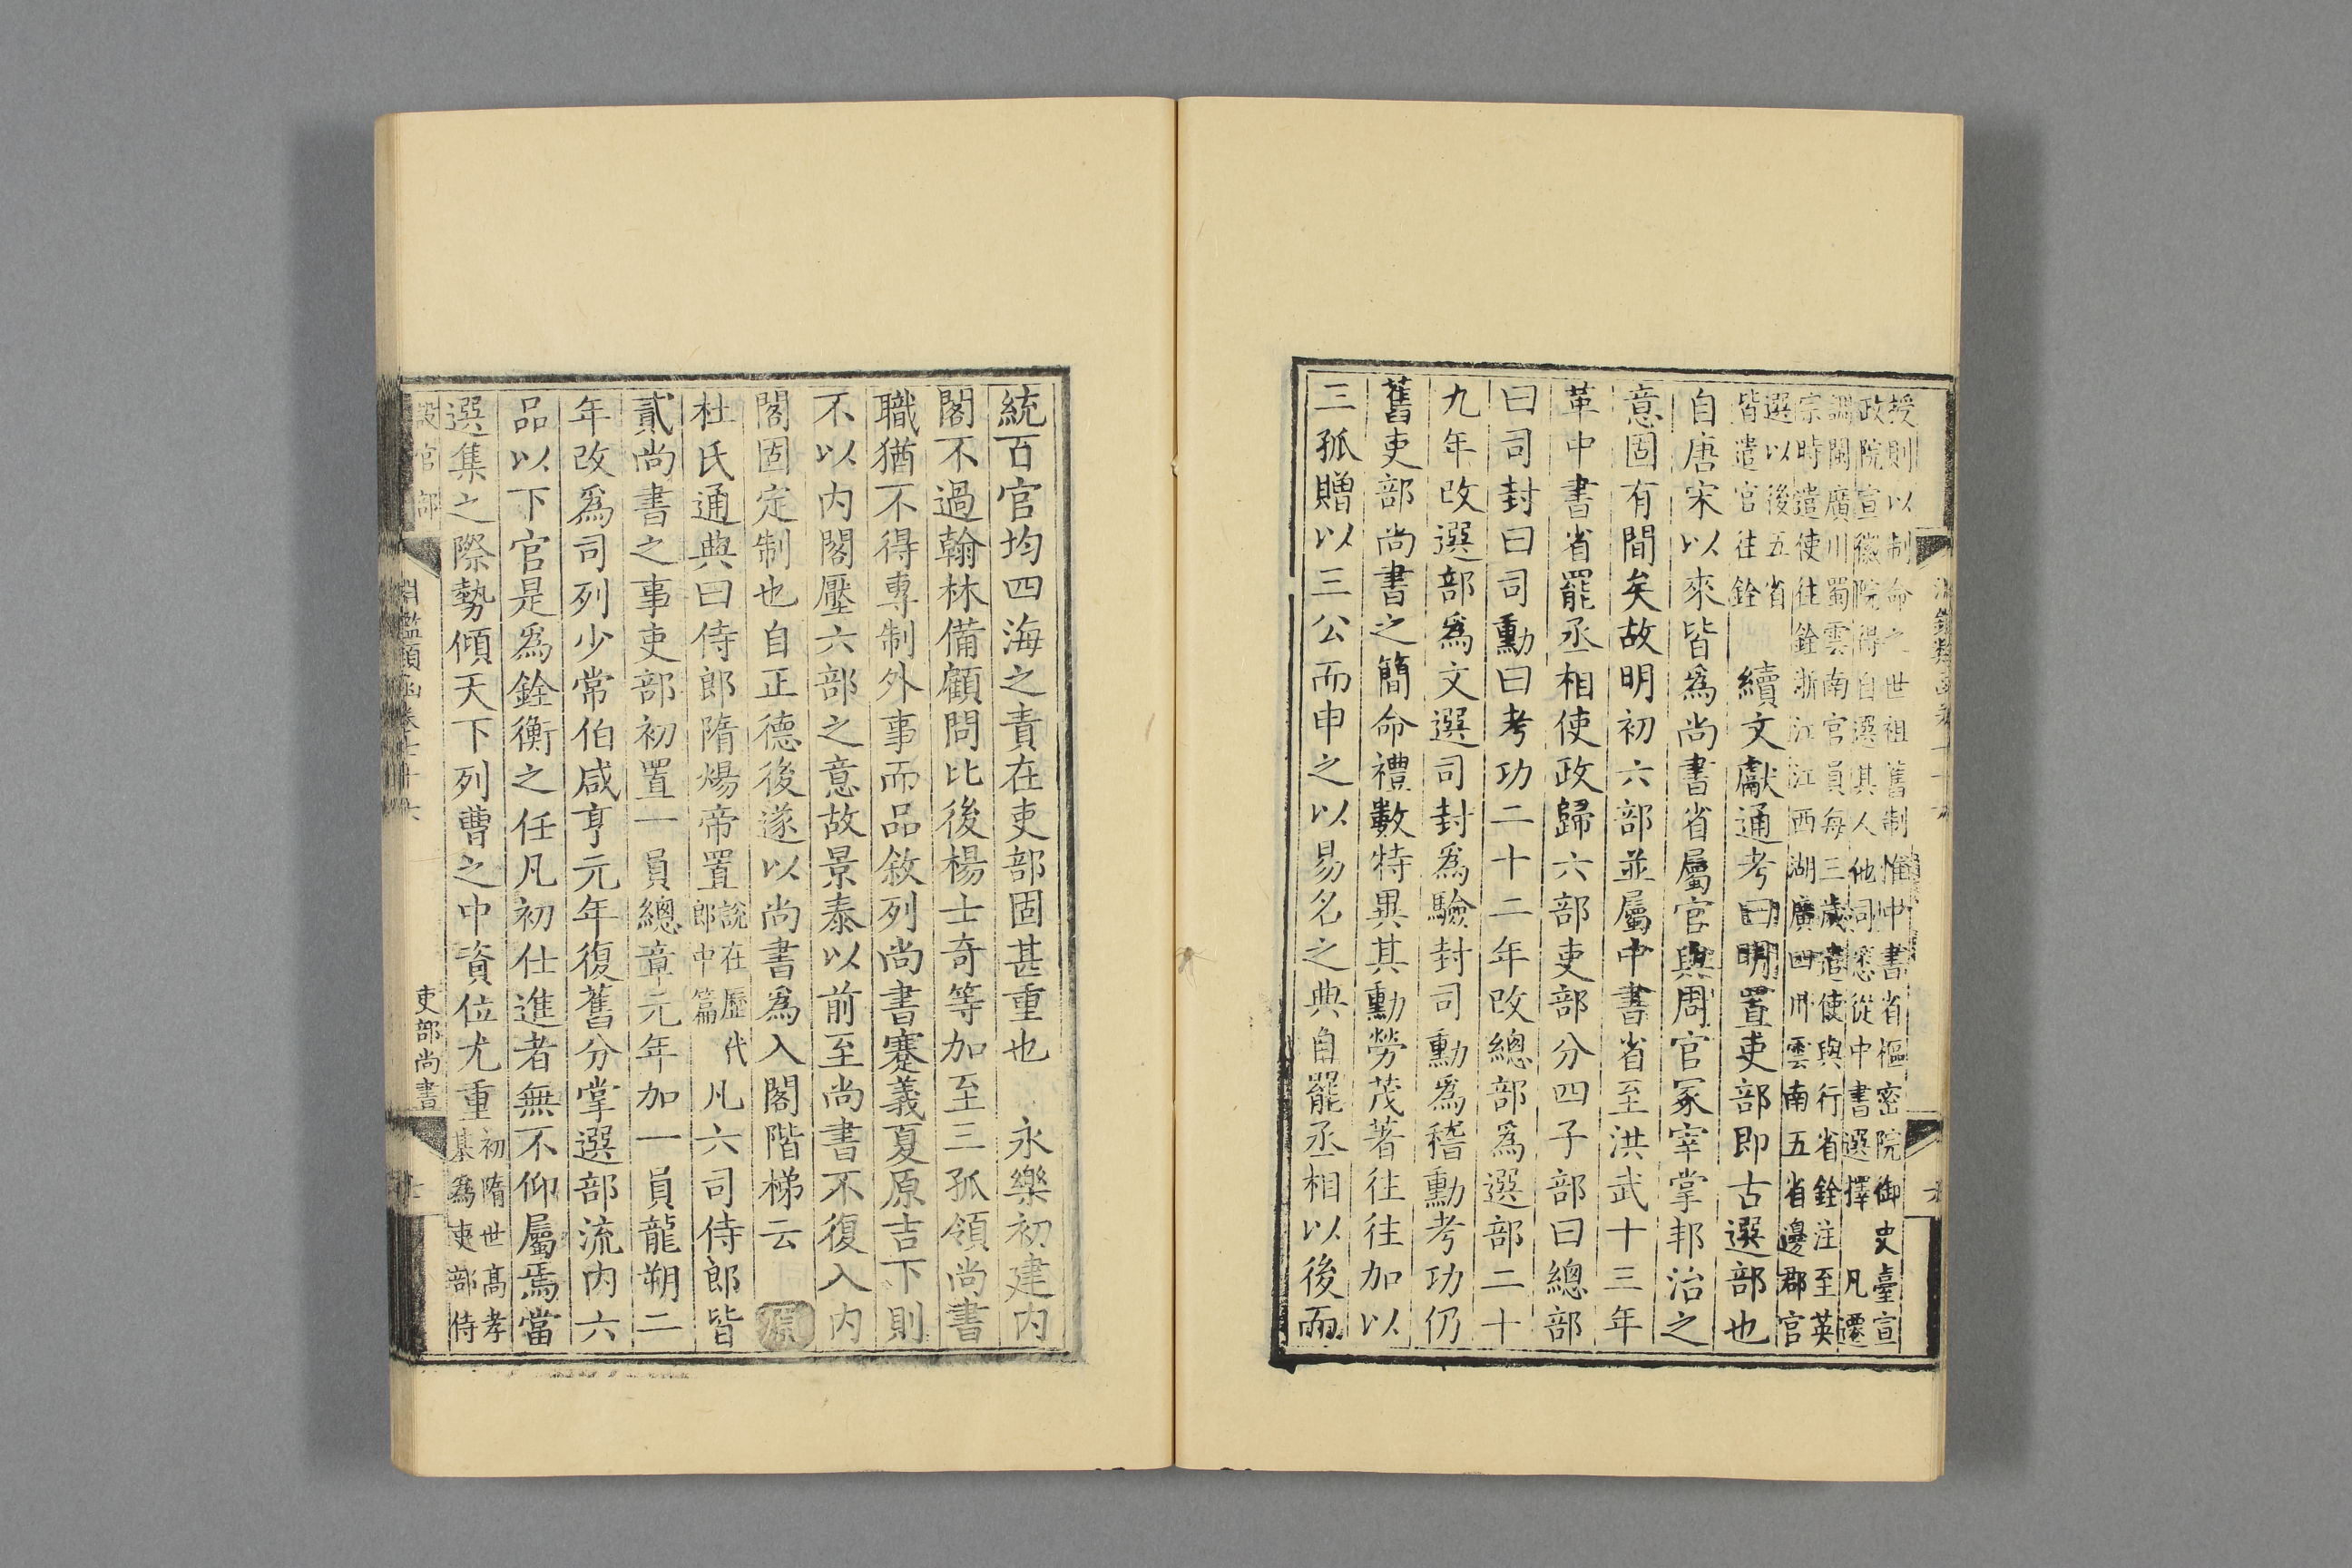 授則以制命之世祖舊制惟中書省樞密院御史臺宣
政院宣徽院得自選其人他司悉從中書選擇　凡遷
調閩廣川蜀雲南官員每三歲遣使與行省銓注至英
宗時遣使往銓浙江江西湖廣四川雲南五省邊郡官
選以後五省
皆遣官往銓
續文獻通考曰明置吏部即古選部也
自唐宋以來皆爲尚書省屬官與周官冢宰掌邦治之
意固有間矣故明初六部並屬中書省至洪武十三年
革中書省罷丞相使政歸六部吏部分四子部曰總部
曰司封曰司勳曰考功二十二年改總部爲選部二十
九年改選部爲文選司封爲驗封司勳爲稽勳考功仍
舊吏部尚書之簡命禮數特異其勳勞茂著往往加以
三孤贈以三公而申之以易名之典自罷丞相以後而
統百官均四海之責在吏部固甚重也　永樂初建内
閣不過翰林備顧問比後楊士奇等加至三孤領尚書
職猶不得專制外事而品敘列尚書蹇義夏原吉下則
不以内閣壓六部之意故景泰以前至尚書不復入内
閣固定制也自正德後遂以尚書爲入閣階梯云　原
杜氏通典曰侍郎隋煬帝置
說在歷代
郎中篇
凡六司侍郎皆
貳尚書之事吏部初置一員總章元年加一員龍朔二
年改爲司列少常伯咸亨元年復舊分掌選部流内六
品以下官是爲銓衡之任凡初仕進者無不仰屬焉當
選集之際勢傾天下列曹之中資位尤重
初隋世高孝
基爲吏部侍
設官部
淵鑑類函卷七十六
吏部尚書